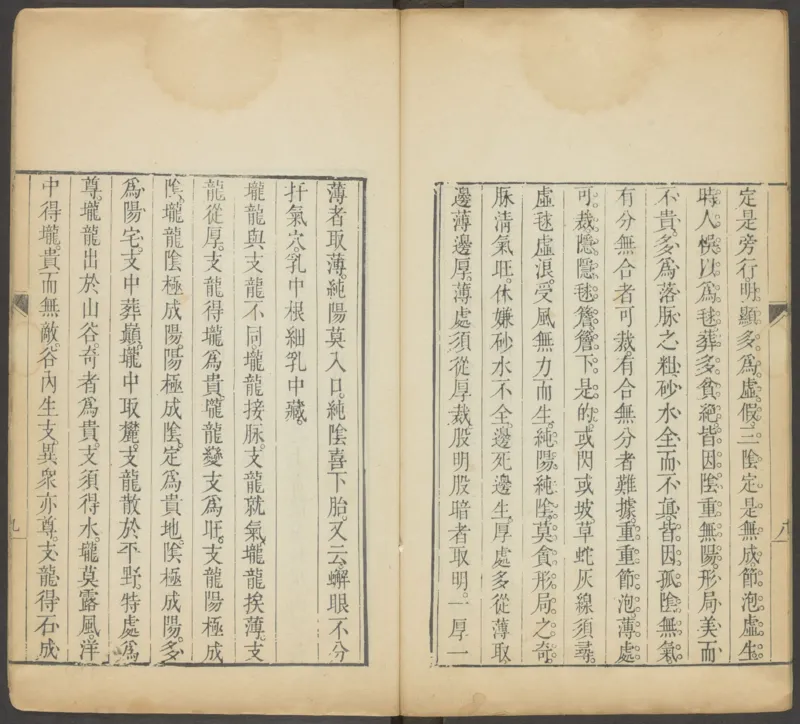 定是旁行明顯多爲虛假三陰定是無成節泡虛生
時人悞以爲毬葬多貧絕皆因陰重無陽形局美而
不貴多爲落脉之粗砂水全而不眞皆因孤陰無氣
有分無合者可裁有合無分者難據重重節泡薄處
可裁隱隱毬簷簷下是的或閃或坡草蛇灰線須尋
虛毬虛浪受風無力而生純陽純陰莫貪形局之奇
脉淸氣旺休嫌砂水不全邊死邊生厚處多從薄取
邊薄邊厚薄處須從厚裁股明股暗者取明一厚一
八
薄者取薄純陽莫入口純陰喜下胎又云蟹眼不分
扦氣穴乳中根細乳中藏
壠龍與支龍不同壠龍接脉支龍就氣壠龍挨薄支
龍從厚支龍得壠爲貴壠龍變支爲旺支龍陽極成
陰壠龍陰極成陽陽極成陰定爲貴地陰極成陽多
爲陽宅支中葬巔壠中取麓支龍散於平野特處爲
尊壠龍出於山谷奇者爲貴支須得水壠莫露風洋
中得壠貴而無敵谷內生支異衆亦尊支龍得石成
九